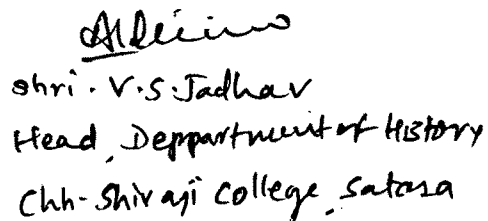 shri. V.S. Jadhav
Head, Deppartment of History
Chh- Shivaji College, Satara